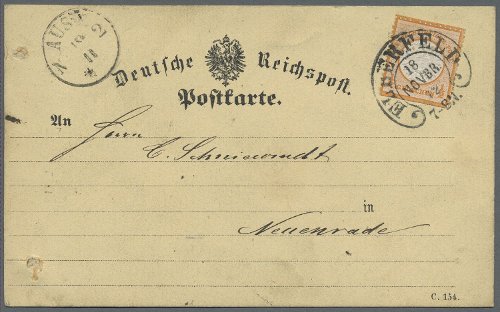 AUSG
18 11
Deutsche Reichspost.
Postkarte.
ELBERFELD
18
NOVBR.
7-8N.
An
Herrn
C. Schniewindt
in
Neuenrade
C. 154.